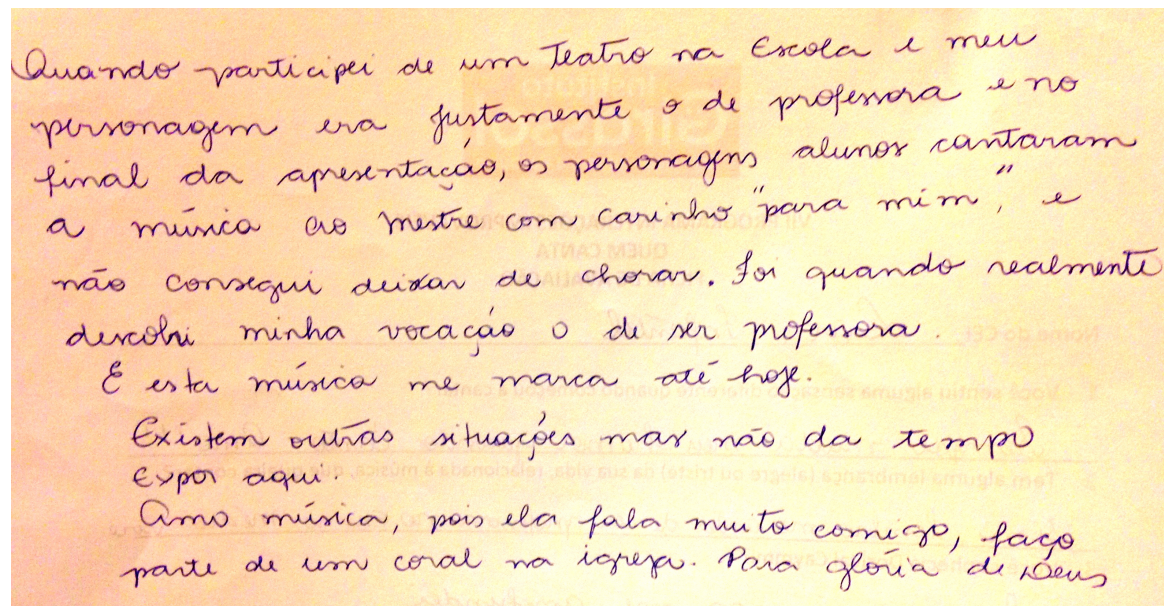 Quando participei de um Teatro na Escola e meu
personagem era justamente o de professora e no
final da apresentação, os personagens alunos cantaram
a música ao mestre com carinho "para mim", e
não consegui deixar de chorar. Foi quando realmente
descobri minha vocação o de ser professora.
E esta música me marca até hoje.
Existem outras situações mas não da tempo
expor aqui.
Amo música, pois ela fala muito comigo, faço
parte de um coral na igreja. Para glória de Deus